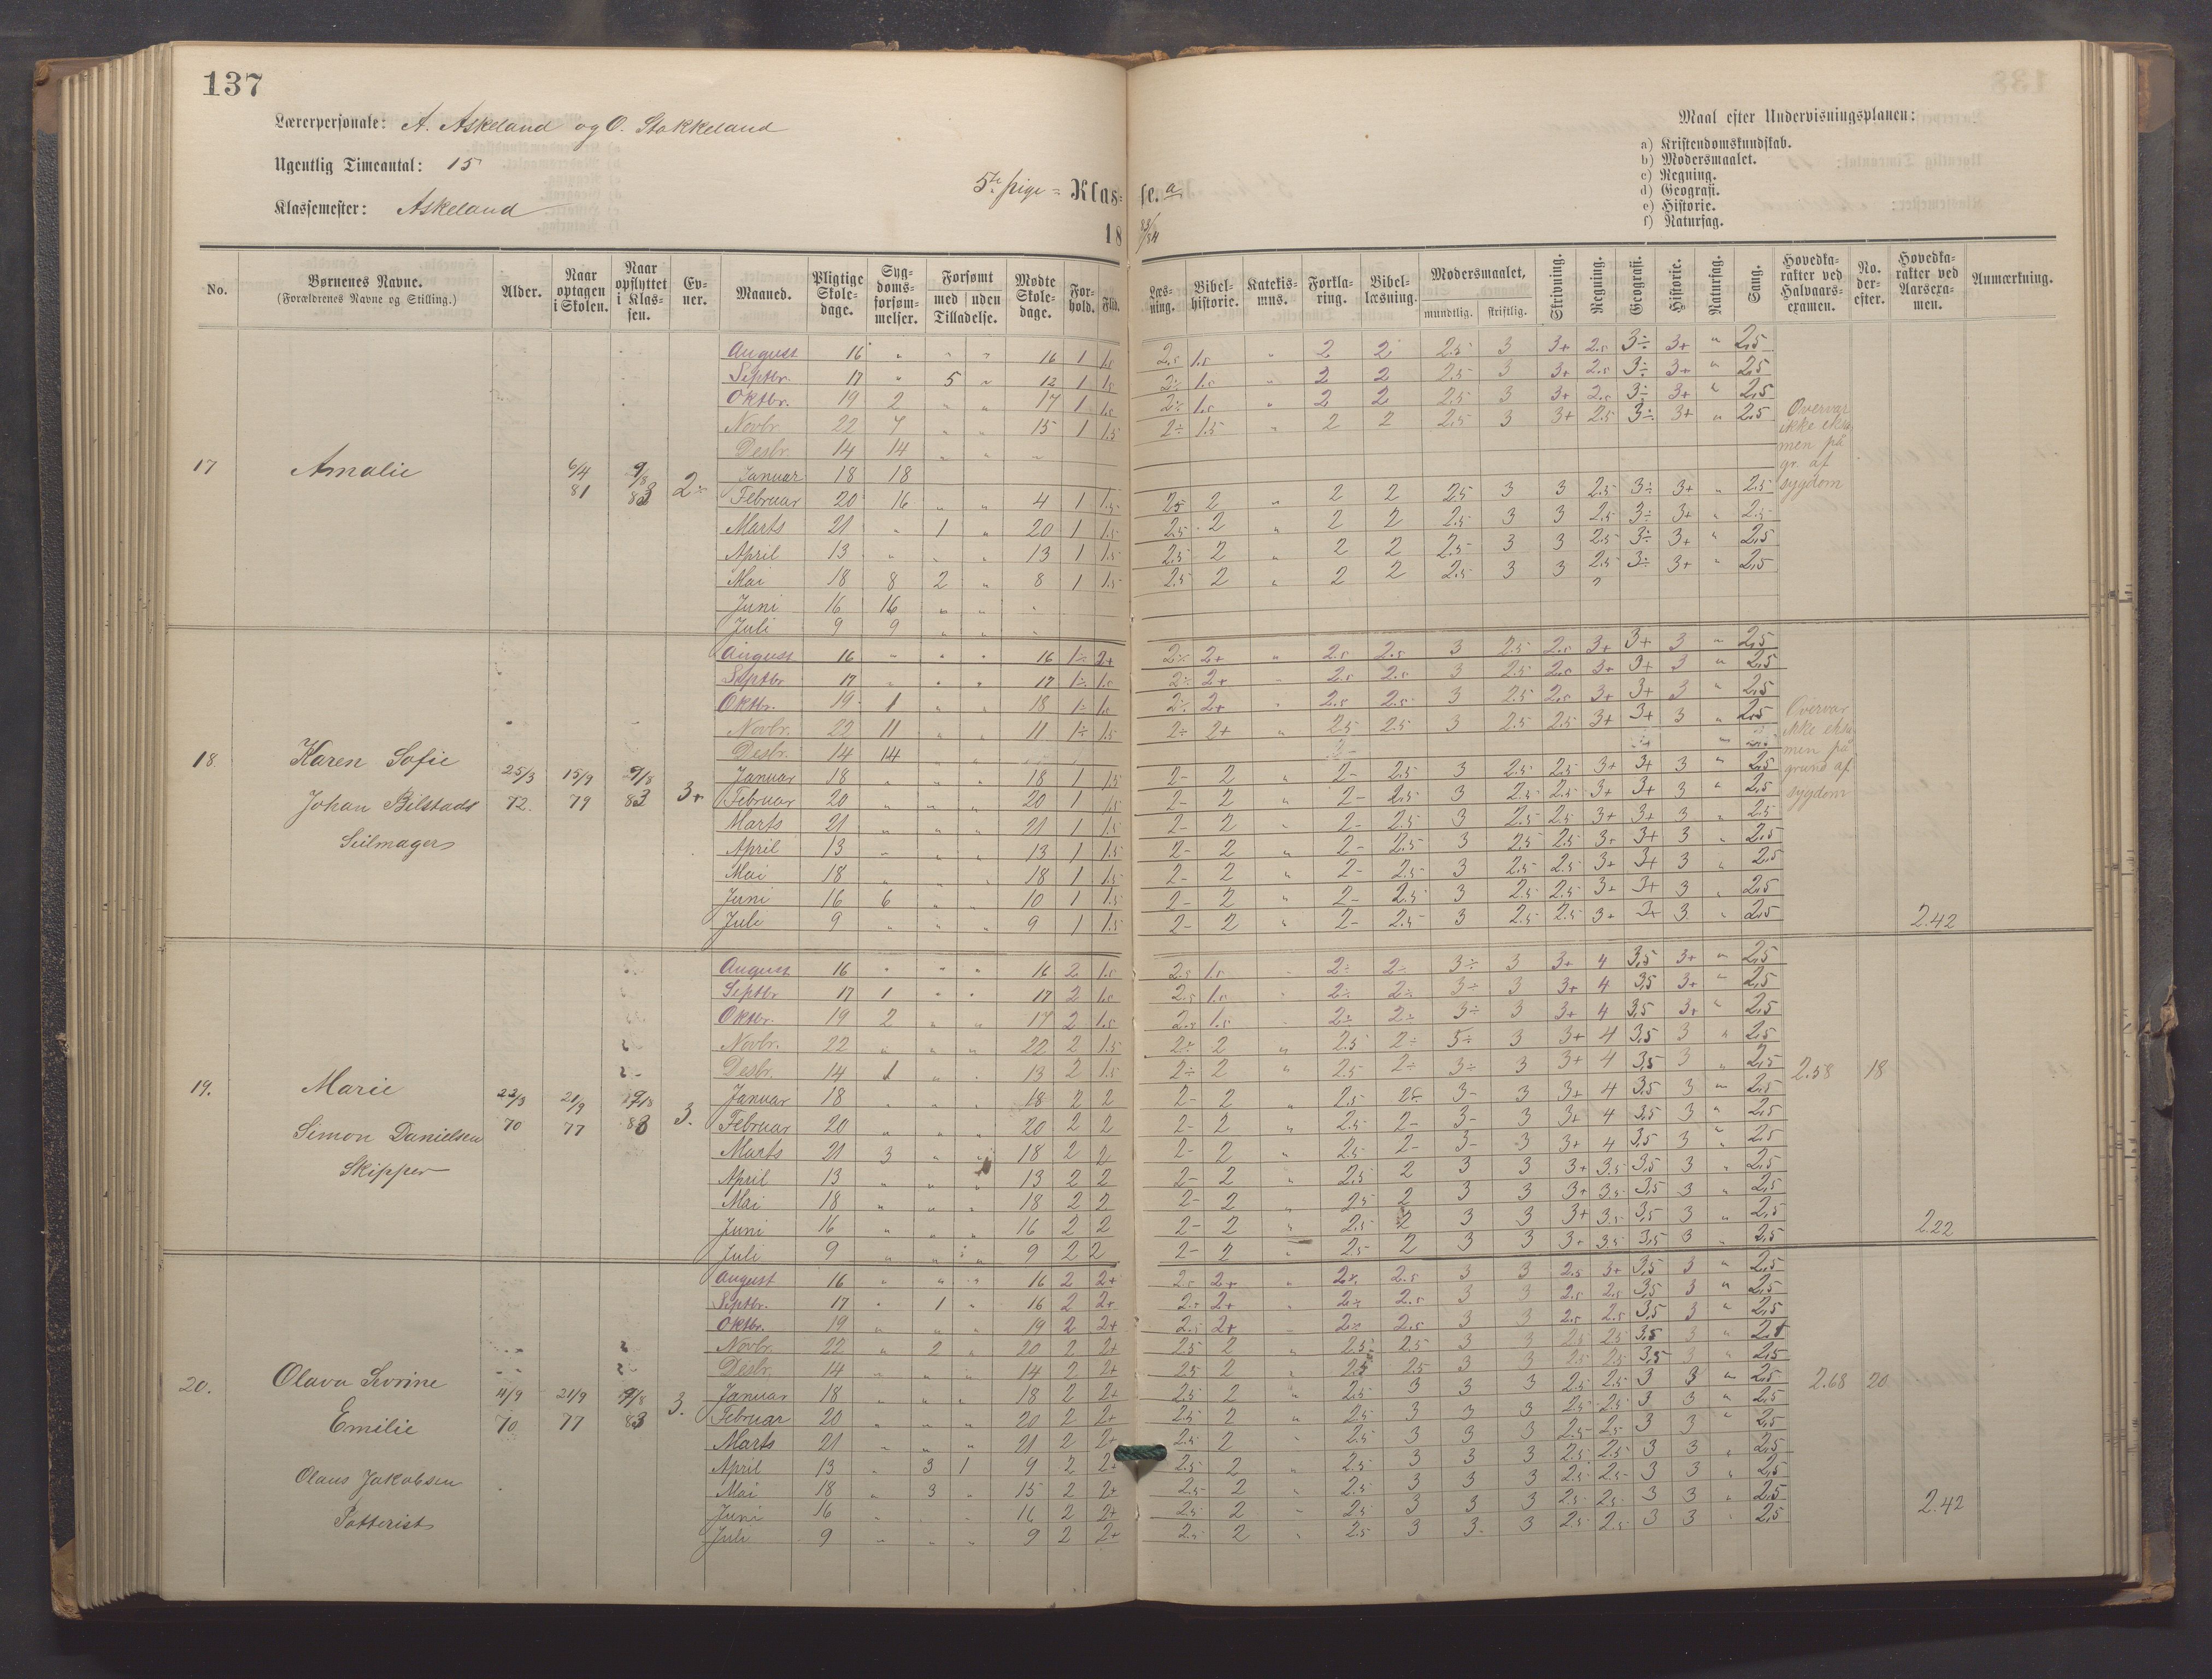 137
Lærerpersonale: A. Askeland og O. Stokkeland
Ugentlig Timeantal: 15
Klassemester: Askeland
5te pige= Klas= se. a
18 83/84
Maal efter Undervisningsplanen:
a) Kristendomskundskab.
b) Modersmaalet.
c) Regning.
d) Geografi.
e) Historie.
f) Naturfag.
No. Børnenes Navne. (Forældrenes Navne og Stilling.) Alder. Naar optagen i Skolen. Naar opflyttet i Klassen. Evner. Maaned. Pligtige Skoledage. Sygdomsforsømmelser. Forsømt med uden Tilladelse. Mødte Skoledage. Forhold. Flid. Læsning. Bibelhistorie. Katekismus. Forklaring. Bibellæsning. Modersmaalet, mundtlig. skriftlig. Skrivning. Regning. Geografi. Historie. Naturfag. Sang. Hovedkarakter ved Halvaarsexamen. No. derefter. Hovedkarakter ved Aarsexamen. Anmærkning.
17 Amalie 6/4 81 9/8 83 2÷
August 16 " " " 16 1 1.5 2.5 1.5 " 2 2 2.5 3 3+ 2.5 3÷ 3+ " 2,5
Septbr. 17 " 5 " 12 1 1.5 2÷ 1.5 " 2 2 2.5 3 3+ 2.5 3÷ 3+ " 2,5
Oktbr. 19 2 " " 17 1 1.5 2÷ 1.5 " 2 2 2.5 3 3+ 2.5 3÷ 3+ " 2,5
Novbr. 22 7 " " 15 1 1.5 2÷ 1.5 " 2 2 2.5 3 3+ 2.5 3÷ 3+ " 2,5
Desbr. 14 14 " " "
Januar 18 18
Februar 20 16 " " 4 1 1.5 2.5 2 " 2 2 2.5 3 3 2.5 3÷ 3+ " 2.5
Marts 21 " 1 " 20 1 1.5 2.5 2 " 2 2 2.5 3 3 2.5 3÷ 3+ " 2.5
April 13 " " " 13 1 1.5 2.5 2 " 2 2 2.5 3 3 2.5 3÷ 3+ " 2,5
Mai 18 8 2 " 8 1 1.5 2.5 2 " 2 2 2.5 3 3 2.5 3÷ 3+ " 2,5
Juni 16 16 " " "
Juli 9 9 " " "
Overvar ikke eksamen på gr. af sygdom
18 Karen Sofie
Johan Bilstads
Seilmager
25/3 72. 15/9 79 9/8 83 3+
August 16 " " " 16 1÷ 2+ 2÷ 2+ " 2.5 2.5 3 2.5 2.5 3+ 3+ 3 " 2,5
Septbr 17 " " " 17 1÷ 1.5 2÷ 2+ " 2.5 2.5 3 2.5 2.5 3+ 3+ 3 " 2,5
Oktbr. 19 1 " " 18 1÷ 1.5 2÷ 2+ " 2.5 2.5 3 2.5 2.5 3+ 3+ 3 " 2,5
Novbr. 22 11 " " 11 1÷ 1.5 2÷ 2+ " 2.5 2.5 3 2.5 2.5 3+ 3+ 3 " 2,5
Desbr. 14 14 " "
Januar 18 " " " 18 1 1.5 2- 2 " 2- 2.5 3 2.5 2.5 3+ 3+ 3 " 2,5
Februar 20 " " " 20 1 1.5 2- 2 " 2- 2.5 3 2.5 2.5 3+ 3+ 3 " 2,5
Marts 21 " " " 21 1 1.5 2- 2 " 2- 2.5 3 2.5 2.5 3+ 3+ 3 " 2.5
April 13 " " " 13 1 1.5 2- 2 " 2- 2.5 3 2.5 2.5 3+ 3+ 3 " 2,5
Mai 18 " " " 18 1 1.5 2- 2 " 2- 2.5 3 2.5 2.5 3+ 3+ 3 " 2,5
Juni 16 6 " " 10 1 1.5 2- 2 " 2- 2.5 3 2.5 2.5 3+ 3+ 3 " 2,5
Juli 9 " " " 9 1 1.5 2- 2 " 2- 2.5 3 2.5 2.5 3+ 3+ 3 " 2,5 2.42
Overvar ikke eksamen på grund af sygdom
19. Marie
Simon Danielsen
Skipper
22/3 70 21/9 77 9/8 83 3.
August 16 " " " 16 2 1.5 2.5 1.5 " 2÷ 2÷ 3÷ 3 3+ 4 3,5 3+ " 2,5
Septbr 17 1 " " 17 2 1.5 2.5 1.5 " 2÷ 2÷ 3÷ 3 3+ 4 3,5 3+ " 2,5
Oktbr. 19 2 " " 17 2 1.5 2.5 1.5 " 2÷ 2÷ 3÷ 3 3+ 4 3,5 3+ " 2,5
Novbr. 22 " " " 22 2 1.5 2÷ 2 " 2.5 2÷ 3÷ 3 3+ 4 3,5 3 " 2,5
Desbr. 14 1 " " 13 2 1.5 2÷ 2 " 2.5 2÷ 3÷ 3 3+ 4 3,5 3 " 2,5 2.58 18
Januar 18 " " " 18 2 2 2- 2 " 2.5 2- 3- 3 3+ 4 3,5 3 " 2,5
Februar 20 " " " 20 2 2 2- 2 " 2.5 2- 3- 3 3+ 4 3,5 3 " 2,5
Marts 21 3 " " 18 2 2 2- 2 " 2.5 2- 3- 3 3+ 4 3,5 3 " 2,5
April 13 " " " 13 2 2 2- 2 " 2,5 2 3 3 3+ 3.5 3,5 3 " 2,5
Mai 18 " " " 18 2 2 2- 2 " 2.5 2 3 3 3+ 3.5 3,5 3 " 2,5
Juni 16 " " " 16 2 2 2- 2 " 2.5 2 3 3 3+ 3.5 3,5 3 " 2,5 2.22
Juli 9 " " " 9 2 2 2- 2 " 2.5 2 3 3 3+ 3.5 3,5 3 " 2,5
20. Olava Sevrine
Emilie
Olaus Jakobsen
11/9 70 21/9 77 9/8 83 3.
August 16 " " " 16 2 2+ 2.5 2+ " 2÷ 2.5 3 3 2.5 3+ 3,5 3 " 2,5
Septbr. 17 " 1 " 16 2 2+ 2.5 2+ " 2÷ 2.5 3 3 2.5 2.5 3,5 3 " 2,5
Oktbr. 19 " " " 19 2 2+ 2.5 2+ " 2÷ 2.5 3 3 2.5 2.5 3,5 3 " 2,5
Novbr. 22 " 2 " 20 2 2+ 2.5 2 " 2.5 2.5 3 3 2.5 2.5 3,5 3 " 2,5
Desbr. 14 " " " 14 2 2+ 2.5 2 " 2.5 2.5 3 3 2.5 2.5 3,5 3 " 2,5
Januar 18 " " " 18 2 2+ 2.5 2 " 2.5 3 3 3 2.5 2.5 3 3 " 2,5 2.68 20
Februar 20 " " " 20 2 2+ 2.5 2 " 2.5 3 3 3 2.5 2.5 3 3 " 2,5
Marts 21 " " " 21 2 2+ 2.5 2 " 2.5 3 3 3 2.5 2.5 3 3 " 2,5
April 13 " 3 1 9 2 2+ 2.5 2 " 2.5 3 3 3 2.5 2.5 3 3 " 2,5
Mai 18 " 3 " 15 2 2+ 2.5 2 " 2.5 3 3 3 2.5 2.5 3 3 " 2,5
Juni 16 " " " 16 2 2+ 2.5 2 " 2.5 3 3 3 2.5 2.5 3 3 " 2,5 2.42
Juli 9 " " " 9 2 2+ 2.5 2 " 2.5 3 3. 3 2.5 2.5 3 3 " 2,5